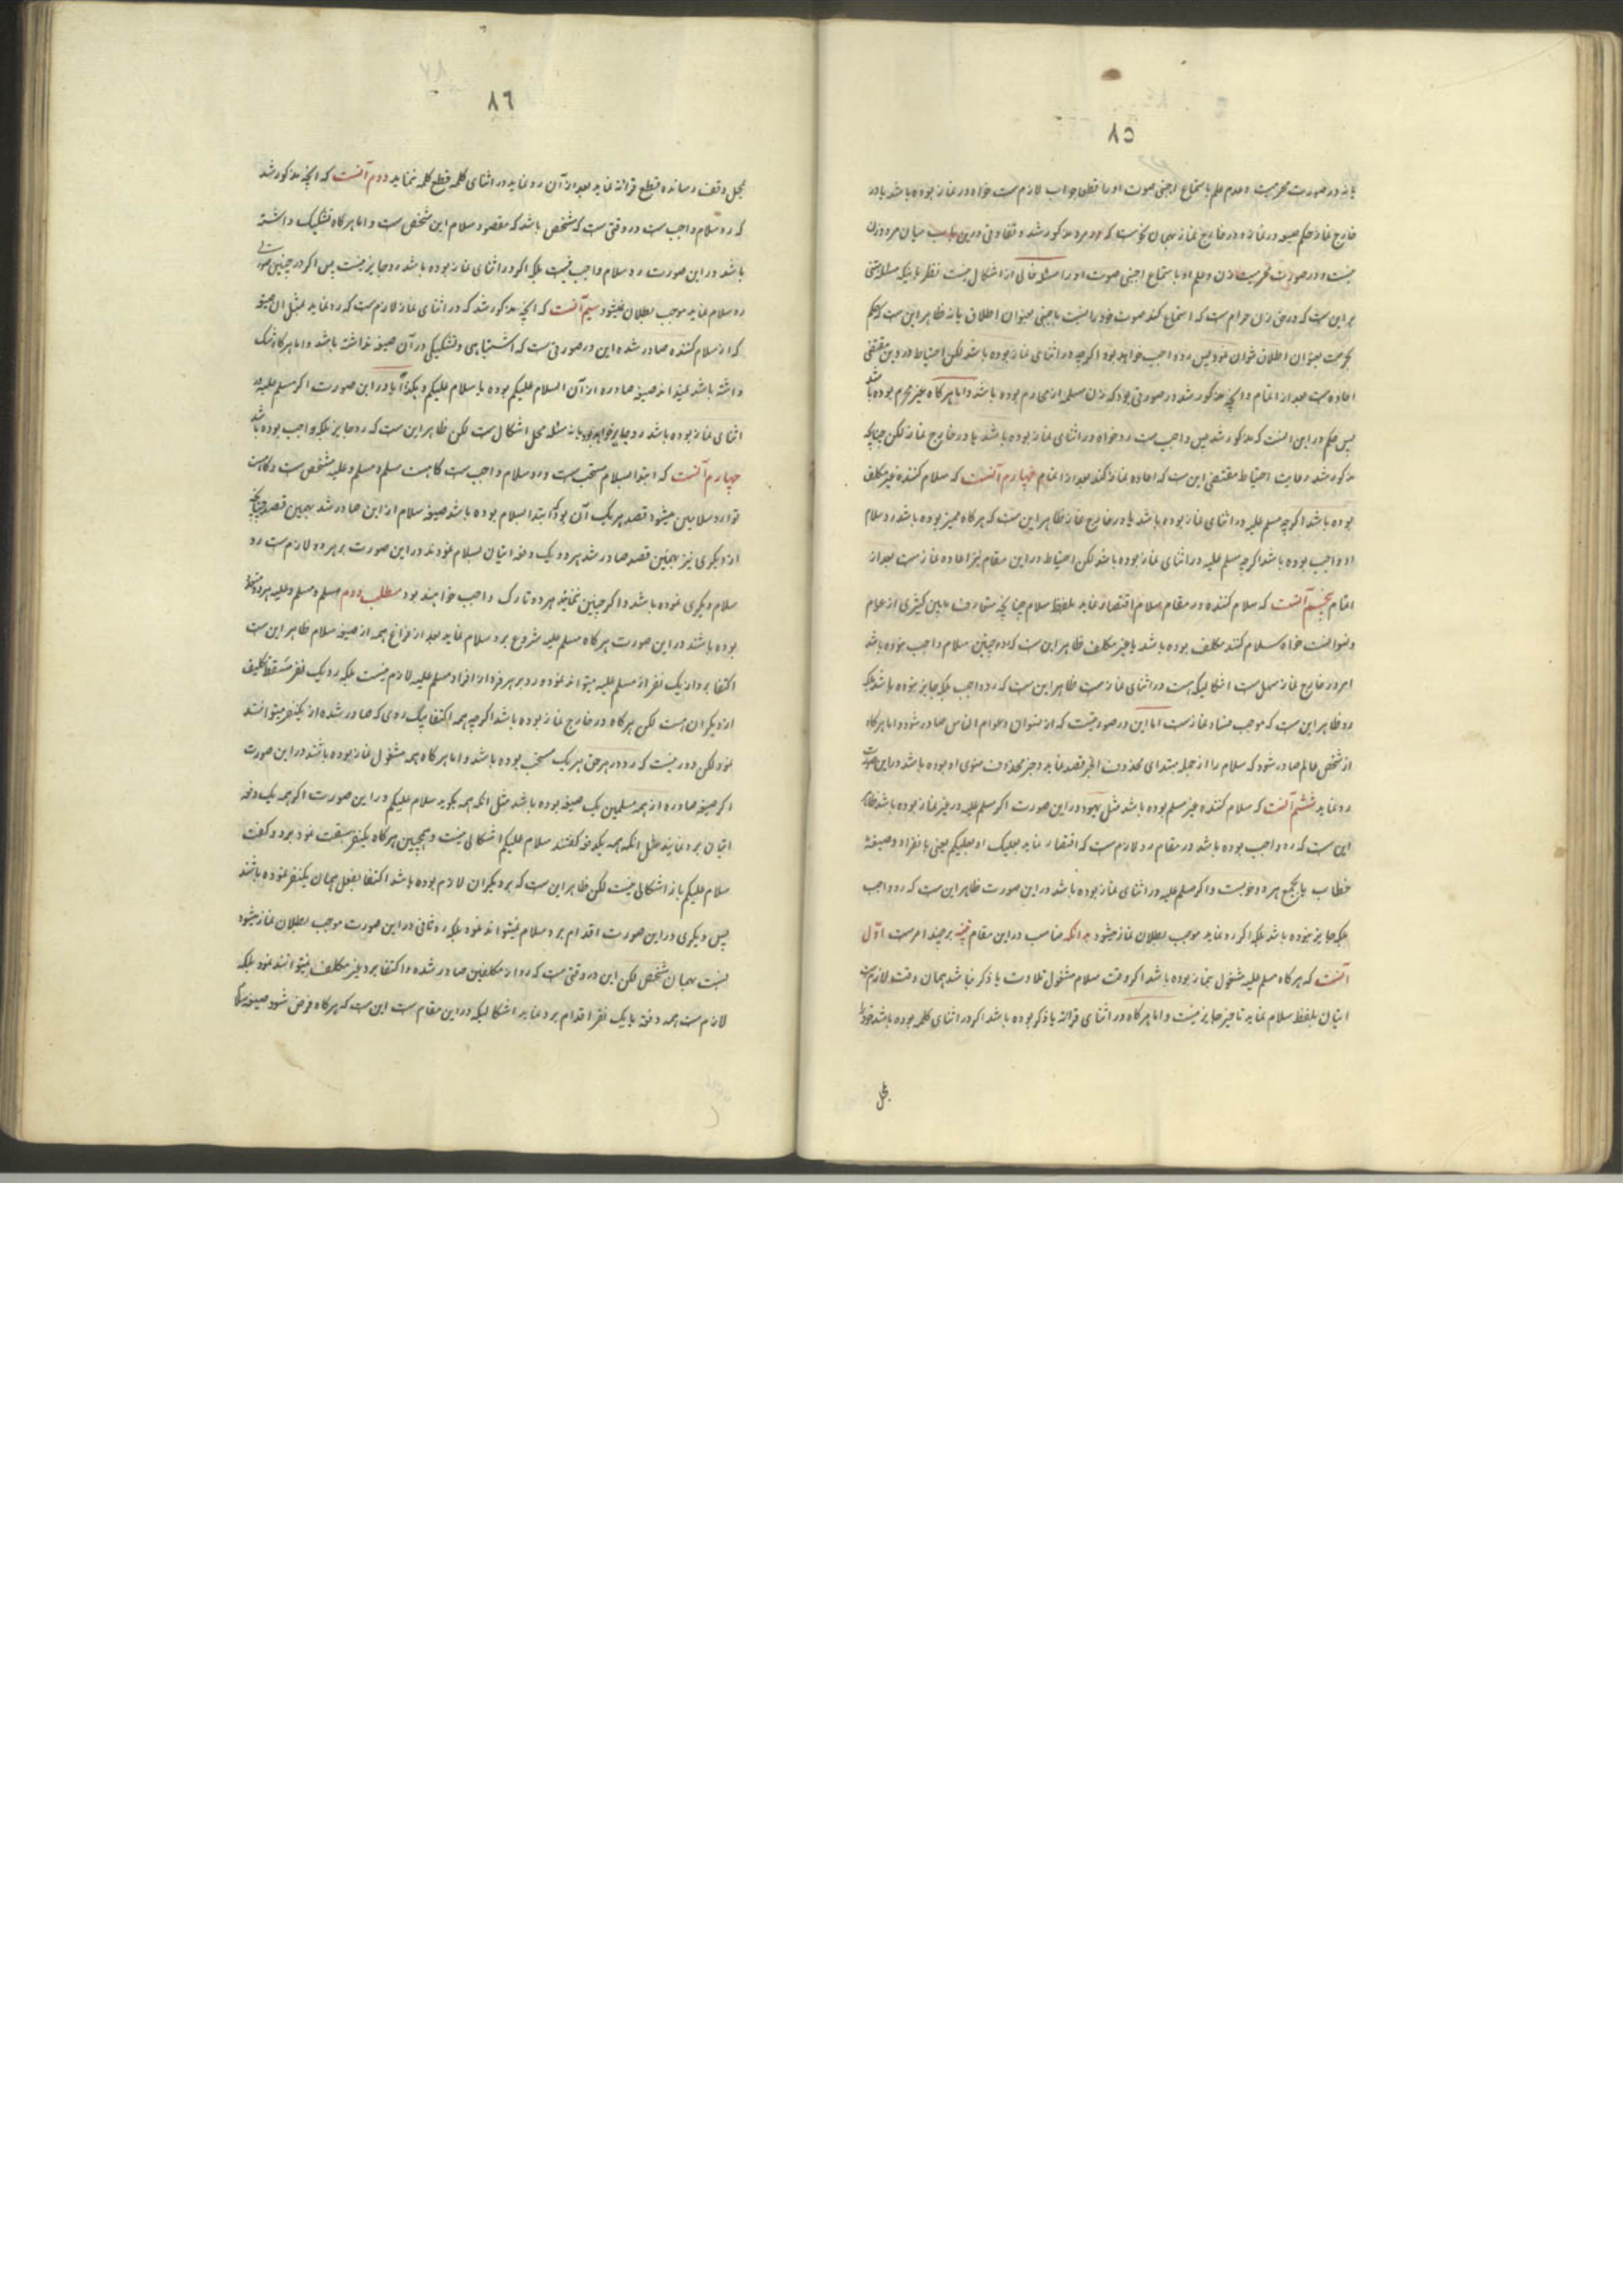 ٨٥
یا نه در صورت محرمیت و عدم علم باستماع اجنبی صوت او را قطعا جواب لازمست خواه در نماز بوده باشد یا در
خارج نماز حکم صیغه در نماز و در خارج نماز بهمان نحو است که در مرد مذکور شد و تفاوتی درین باب میان مرد و زن
نیست و در صورت محرمیت زن و علم او باستماع اجنبی صوت او را مسئله خالی از اشکال نیست نظر باینکه مسئله مبتنی
بر این ست که در حق زن حرام ست که استماع کند صوت خود را بنسبت باجنبی بعنوان اطلاق یا نه ظاهر این ست که حکم
بحرمت بعنوان اطلاق نتوان نمود پس رد واجب خواهد بود اگرچه در اثنای نماز بوده باشد لکن احتیاط در دین مقتضی
اعاده ست بعد از اتمام و آنچه مذکور شد در صورتی بود که زن مسلمه از محارم بوده باشد و اما هر گاه غیر محرم بوده باشد
پس حکم در این آنست که مذکور شد پس واجب ست رد خواه در اثنای نماز بوده باشد یا در خارج نماز لکن چنانچه
مذکور شد رعایت احتیاط مقتضی این ست که اعاده نماز کند بعد از اتمام چهارم آنست که سلام کننده غیر مکلف
بوده باشد اگرچه مسلم علیه در اثنای نماز بوده باشد یا در خارج نماز ظاهر این ست که هر گاه ممیز بوده باشد رد سلام
او واجب بوده باشد اگرچه مسلم علیه در اثنای نماز بوده باشد لکن احتیاط در این مقام نیز اعاده نماز ست بعد از
اتمام پنجم آنست که سلام کننده در مقام سلام اقتصار نماید بلفظ سلام چنانچه متعارف مابین کثیری از عوام
و نسوانست خواه سلام کننده مکلف بوده باشد یا غیر مکلف ظاهر این ست که رد چنین سلام واجب نبوده باشد
امر در خارج نماز سهل ست اشکالیکه هست در اثنای نماز ست ظاهر این ست که رد واجب بلکه جایز نبوده باشد بلکه
رد ظاهر این ست که موجب فساد نماز ست اما این در صورتیست که از نسوان و عوام الناس صادر شود و اما هر گاه
از شخص عالم صادر شود که سلام را از جمله مبتدای محذوف الخبر قصد نماید و خبر محذوف منوی او بوده باشد در این صورت
رد نماید ششم آنست که سلام کننده غیر مسلم بوده باشد مثل یهود در این صورت اگر مسلم علیه در غیر نماز بوده باشد ظاهر
این ست که رد واجب بوده باشد در مقام رد لازم ست که اقتصار نماید بعلیک او بعلیکم یعنی بانفراد و صیغه
خطاب یا بجمع هر دو خوبست و اگر مسلم علیه در اثنای نماز بوده باشد در این صورت ظاهر این ست که رد واجب
بلکه جایز نبوده باشد بلکه اگر رد نماید موجب بطلان نماز میشود بدانکه مناسب در این مقام تنبیه بر چند امر ست اوّل
آنست که هر گاه مسلم علیه مشغول بنماز بوده باشد اگر وقت سلام مشغول تلاوت یا ذکر نباشد همان وقت لازمست
اتیان بلفظ سلام نماید تاخیر جایز نیست و اما هر گاه در اثنای قرائة یا ذکر بوده باشد اگر در اثنای کلمه بوده باشد خود را
بمحل
٨٦
بمحل وقف رسانده قطع قرائة نماید بعد از آن رد نماید در اثنای کلمه قطع کلمه ننماید دوم آنست که آنچه مذکور شد
که رد سلام واجب ست در وقتی ست که شخص باشد که مقصود سلام این شخص ست و اما هر گاه تشکیک داشته
باشد در این صورت رد سلام واجب نیست بلکه اگر در اثنای نماز بوده باشد رد جایز نیست پس اگر در چنین صورت
رد سلام نماید موجب بطلان میشود سیم آنست که آنچه مذکور شد که در اثنای نماز لازم ست که رد نماید بمثل آن صیغه
که از سلام کننده صادر شده این در صورتی ست که اشتباهی و تشکیکی در آن صیغه نداشته باشد و اما هر گاه شک
داشته باشد نمیداند صیغه صادره از آن السلام علیکم بوده یا سلام علیکم و هکذا آیا در این صورت اگر مسلم علیه در
اثنای نماز بوده باشد رد جایز خواهد بود یا نه مسئله محل اشکال ست لکن ظاهر این ست که رد جایز بلکه واجب بوده باشد
چهارم آنست که ابتدا بسلام مستحب ست و رد سلام واجب ست گاهست مسلم و مسلم علیه مشخص ست و گاهست
توارد سلامین میشود قصد هر یک آن بود که ابتدا بسلام بوده باشد صیغه سلام از این صادر شد بهمین قصد چنانچه
از دیگری نیز بهمین قصد صادر شد هر دو یک دفعه اتیان بسلام نمودند در این صورت بر هر دو لازم ست رد
سلام دیگری نموده باشد و اگر چنین ننمایند هر دو تارک واجب خواهند بود مطلب دوم مسلم و مسلم علیه هر دو متعدد
بوده باشد در این صورت هر گاه مسلم علیه شروع برد سلام نماید بعد از فراغ همه از صیغه سلام ظاهر این ست
اکتفا برد از یک نفر از مسلم علیه میتواند نمود و رد بر هر فرد از افراد مسلم علیه لازم نیست بلکه رد یک نفر مسقط تکلیف
از دیگران ست لکن هر گاه در خارج نماز بوده باشد اگرچه همه اکتفا بیک ردی که صادر شده از یکنفر میتوانند
نمود لکن دور نیست که رد در حق هر یک مستحب بوده باشد و اما هر گاه همه مشغول نماز بوده باشند در این صورت
اگر صیغه صادره از همه مسلمین یک صیغه بوده باشد مثل آنکه همه بگوید سلام علیکم در این صورت اگر همه یک دفعه
اتیان برد نمایند مثل آنکه همه یکدفعه گفتند سلام علیکم اشکالی نیست و همچنین هر گاه یکنفر سبقت نمود برد و گفت
سلام علیکم باز اشکالی نیست لکن ظاهر این ست که بر دیگران لازم بوده باشد اکتفا بفعل همان یکنفر نموده باشند
پس دیگری در این صورت اقدام برد سلام نمیتواند نمود بلکه رد ثانی در این صورت موجب بطلان نماز میشود
بنسبت بهمان شخص لکن این در وقتی ست که رد از مکلفین صادر شده و اکتفا برد غیر مکلف نمیتوانند نمود بلکه
لازم ست همه دفعة یا یک نفر اقدام برد نماید اشکالیکه در این مقام ست این ست که هر گاه فرض شود صیغه